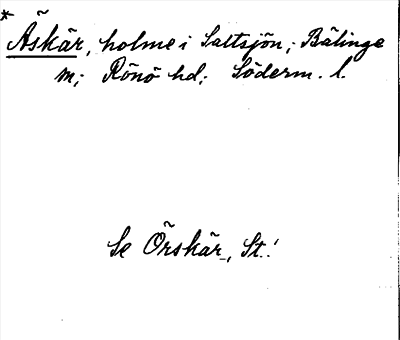 * Äskär, holme i Saltsjön, Bälinge
sn; Rönö hd; Söderm. l.
Se Örskär, St.!